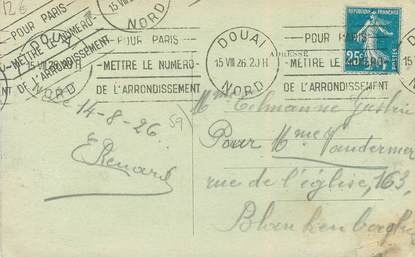 126
POUR PARIS
METTRE LE NUMERO
DE L'ARRONDISSEMENT
15 VIII 26
NORD
POUR PARIS
METTRE LE NUMERO
DE L'ARRONDISSEMENT
DOUAI
15 VIII 26 20 H
NORD
ADRESSE
POUR
METTRE LE NUMERO
DE L'ARRONDISSEMENT
REPUBLIQUE FRANÇAISE
25c
POSTES
14-8-26.
59
E Renard
Mme
Pour Mme Vandermer
rue de l'église, 163,
Blankenberghe